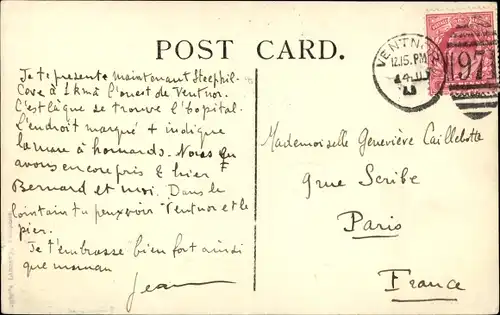 POST CARD.
Je te présente maintenant Steephill
Cove à 1 km à l'ouest de Ventnor.
C'est là que se trouve l'hôpital.
L'endroit marqué + indique
la mare à homards. Nous en
avons encore pris 2 hier
Bernard et moi. Dans le
lointain tu peux voir Ventnor et le
pier.
Je t'embrasse bien fort ainsi
que maman
Jean
VENTNOR
12.15.PM
97
Mademoiselle Geneviève Caillebotte
9 rue Scribe
Paris
France